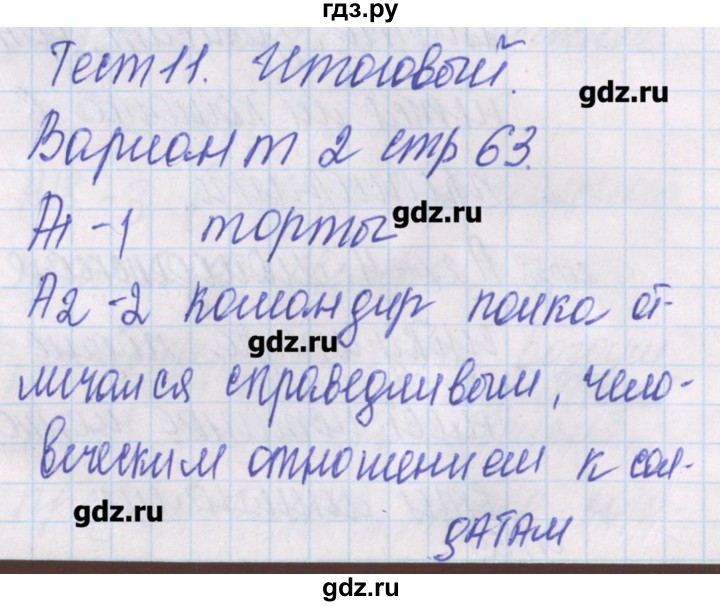 гдз.ру
Тест 11. Итоговый.
gdz.ru
Вариант 2 стр 63.
А1 -1 торты
gdz.ru
А2 -2 командир полка от-
gdz.ru
личался справедливым, чело-
веческим отношением к сол-
gdz.ru
датам
gdz.ru